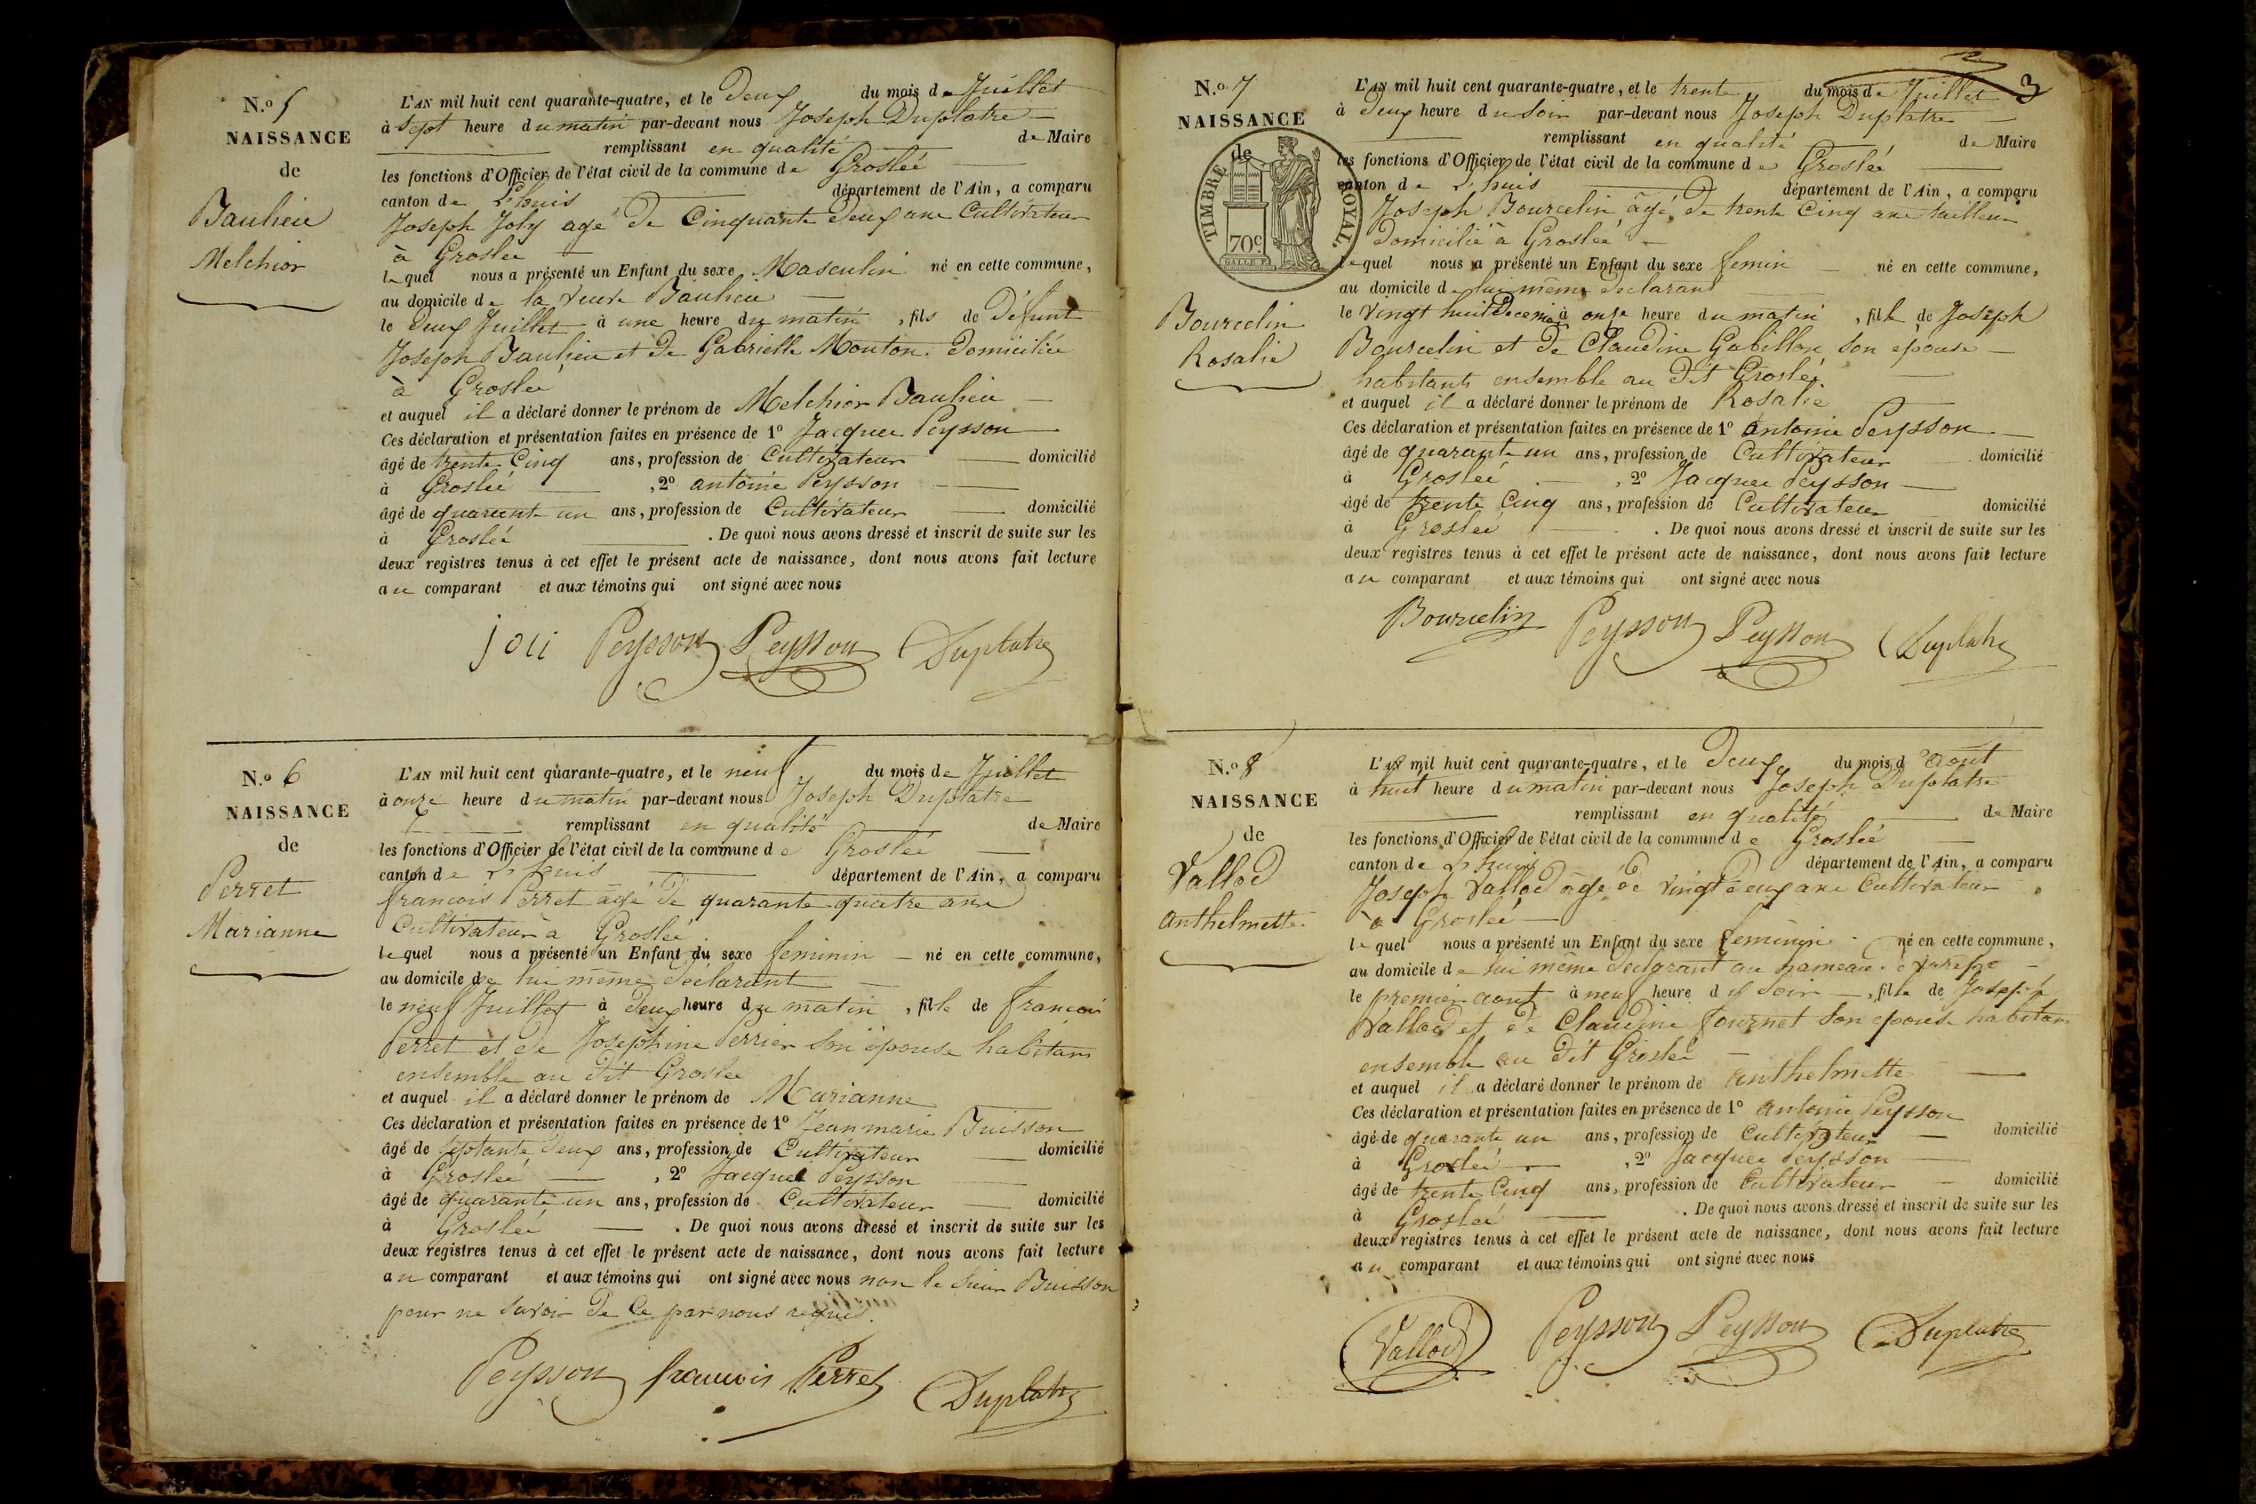 N.o 5
NAISSANCE
de
Baulieu
Melchior
L'AN mil huit cent quarante-quatre, et le deux du mois de Juillet
à sept heure du matin par-devant nous Joseph Duplatre
remplissant en qualité de Maire
les fonctions d'Officier de l'état civil de la commune de Groslée
canton de Lhuis département de l'Ain, a comparu
Joseph Joly agé de Cinquante deux ans Cultivateur
à Groslée
lequel nous a présenté un Enfant du sexe Masculin né en cette commune,
au domicile de la veuve Baulieu
le deux Juillet à une heure du matin, fils de défunt
Joseph Baulieu et de Gabrielle Mouton domiciliée
à Groslée
et auquel il a déclaré donner le prénom de Melchior Baulieu
Ces déclaration et présentation faites en présence de 1o Jacques Peysson
âgé de trente Cinq ans, profession de Cultivateur domicilié
à Groslée, 2o antoine Peysson
âgé de quarante un ans, profession de Cultivateur domicilié
à Groslée. De quoi nous avons dressé et inscrit de suite sur les
deux registres tenus à cet effet le présent acte de naissance, dont nous avons fait lecture
au comparant et aux témoins qui ont signé avec nous
joli Peysson Peysson Duplatre
N.o 6
NAISSANCE
de
Perret
Marianne
L'AN mil huit cent quarante-quatre, et le neuf du mois de Juillet
à onze heure du matin par-devant nous Joseph Duplatre
remplissant en qualité de Maire
les fonctions d'Officier de l'état civil de la commune de Groslée
canton de Lhuis département de l'Ain, a comparu
francois Perret agé de quarante quatre ans
Cultivateur à Groslée
lequel nous a présenté un Enfant du sexe feminin né en cette commune,
au domicile de lui même déclarant
le neuf Juillet à deux heure du matin, fille de francois
Perret et de Josephine Perrier son épouse habitans
ensemble au dit Groslée
et auquel il a déclaré donner le prénom de Marianne
Ces déclaration et présentation faites en présence de 1o Jean marie Buisson
âgé de septante deux ans, profession de Cultivateur domicilié
à Groslée, 2o Jacques Peysson
âgé de quarante un ans, profession de Cultivateur domicilié
à Groslée. De quoi nous avons dressé et inscrit de suite sur les
deux registres tenus à cet effet le présent acte de naissance, dont nous avons fait lecture
au comparant et aux témoins qui ont signé avec nous non le sieur Buisson
pour ne savoir de ce par nous requis.
Peysson francois Perret Duplatre
3
N.o 7
NAISSANCE
de
TIMBRE ROYAL
70c.
Bourcelin
Rosalie
L'AN mil huit cent quarante-quatre, et le trente du mois de Juillet
à deux heure du soir par-devant nous Joseph Duplatre
remplissant en qualité de Maire
les fonctions d'Officier de l'état civil de la commune de Groslée
canton de Lhuis département de l'Ain, a comparu
Joseph Bourcelin âgé de trente Cinq ans tailleur
domicilié à Groslée
lequel nous a présenté un Enfant du sexe femin né en cette commune,
au domicile de lui même déclarant
le vingt huit à onze heure du matin, fille de Joseph
Bourcelin et de Claudine Gabillon son épouse
habitants ensemble au dit Groslée
et auquel il a déclaré donner le prénom de Rosalie
Ces déclaration et présentation faites en présence de 1o antoine Peysson
âgé de quarante un ans, profession de Cultivateur domicilié
à Groslée, 2o Jacques Peysson
âgé de trente Cinq ans, profession de Cultivateur domicilié
à Groslée. De quoi nous avons dressé et inscrit de suite sur les
deux registres tenus à cet effet le présent acte de naissance, dont nous avons fait lecture
au comparant et aux témoins qui ont signé avec nous
Bourcelin Peysson Peysson Duplatre
N.o 8
NAISSANCE
de
Vallod
anthelmette
L'AN mil huit cent quarante-quatre, et le Deux du mois d'aout
à huit heure du matin par-devant nous Joseph Duplatre
remplissant en qualité de Maire
les fonctions d'Officier de l'état civil de la commune de Groslée
canton de Lhuis département de l'Ain, a comparu
Joseph Vallod âgé de vingt deux ans Cultivateur
à Groslée
lequel nous a présenté un Enfant du sexe feminin né en cette commune,
au domicile de lui même déclarant au hameau
le premier aout à neuf heure du soir, fille de Joseph
Vallod et de Claudine fournet son épouse habitans
ensemble au dit Groslée
et auquel il a déclaré donner le prénom de anthelmette
Ces déclaration et présentation faites en présence de 1o antoine Peysson
âgé de quarante un ans, profession de Cultivateur domicilié
à Groslée, 2o Jacques Peysson
âgé de trente Cinq ans, profession de Cultivateur domicilié
à Groslée. De quoi nous avons dressé et inscrit de suite sur les
deux registres tenus à cet effet le présent acte de naissance, dont nous avons fait lecture
au comparant et aux témoins qui ont signé avec nous
Vallod Peysson Peysson Duplatre